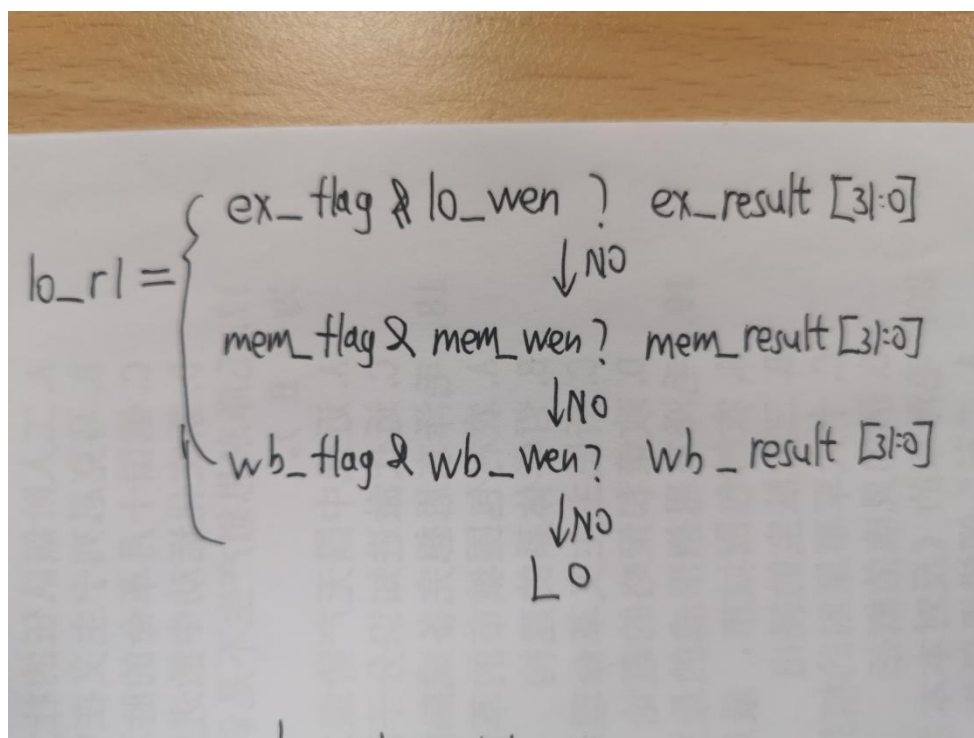 ex_flag & lo_wen ? ex_result [31:0]
↓ NO
lo_rl =
mem_flag & mem_wen? mem_result [31:0]
↓ NO
wb_flag & wb_wen? wb_result [31:0]
↓ NO
LO